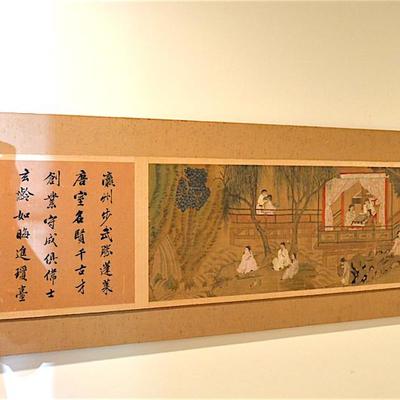 瀛州步武勝蓬萊
唐室名賢千古才
創業守成俱偉士
玄齡如晦進瓊臺